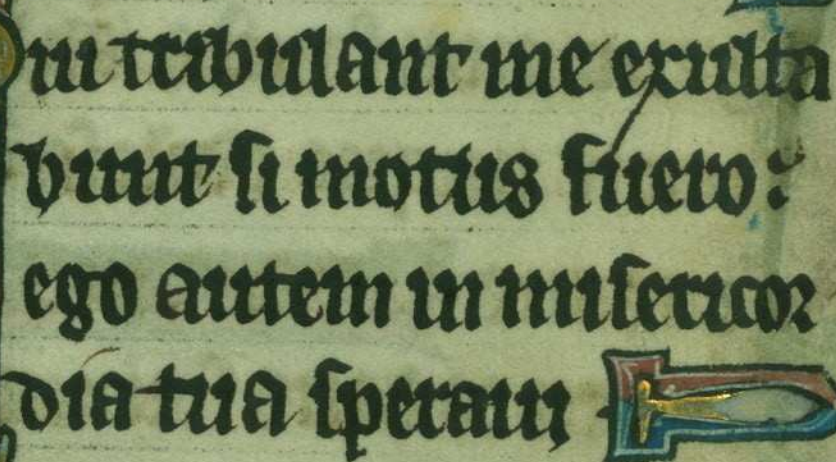 Qui tribulant me exulta
bunt si motus fuero:
ego autem in misericor
dia tua speraui